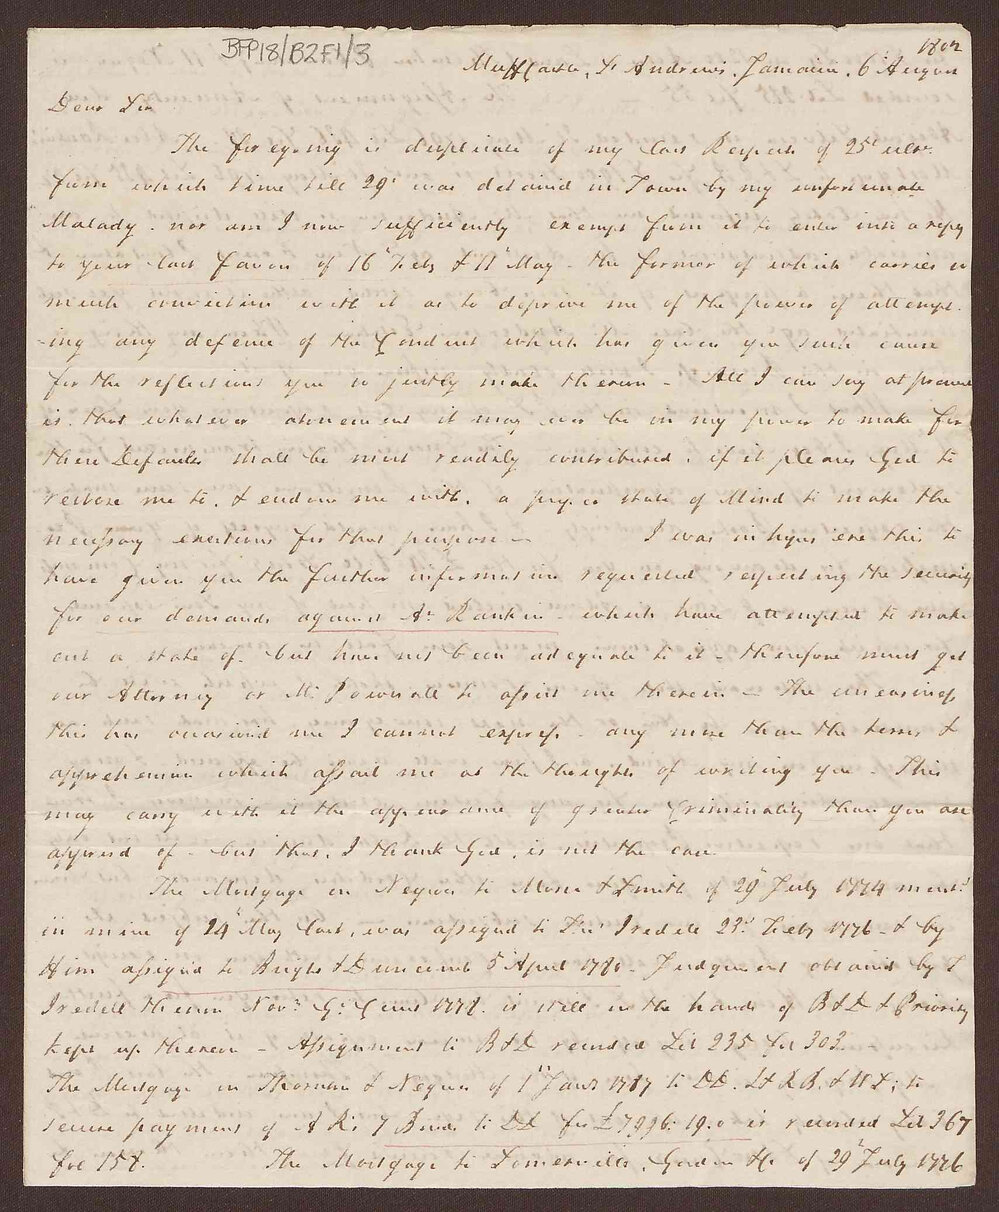 BFP18/B2F1/3
1802
Muff Castle, St Andrews, Jamaica, 6 August
Dear Sir
The foregoing is duplicate of my last Respects of 25th ulto.
from which time till 29th was detained in Town by my unfortunate
Malady. nor am I now sufficiently exempt from it to enter into a reply
to your last favors of 16th Feby & 11th May - the former of which carries so
much conviction with it as to deprive me of the power of attempt-
-ing any defence of the Conduct which has given you such cause
for the reflections you so justly make thereon - All I can say at present
is, that whatever atonement it may ever be in my power to make for
these Defaults shall be most readily contributed, if it pleases God to
restore me to, & endow me with, a proper state of Mind to make the
necessary exertions for that purpose - I was in hopes ere this to
have given you the further information requested respecting the security
for our demands against A. Rankin - which have attempted to make
out a state of, but have not been adequate to it - therefore must get
our Attorney or Mr Pownall to assist me therein - The uneasiness
this has occasioned me I cannot express - any more than the terror &
apprehension which assail me at the thoughts of writing you - This
may carry with it the appearance of greater Criminality than you are
apprised of - but that, I thank God, is not the case.
The Mortgage on Negroes to Morse & Smith of 29th July 1774 mentd
in mine of 24th May last, was assigned to Iredell 23d Feby 1776 - & by
Him assigned to Bright & Duncomb 5 April 1780 - Judgment obtained by
Iredell thereon Novr Gd Court 1778. is still in the hands of B & D & Priority
kept up thereon - Assignment to B & D recorded Lib 235 fol 303 -
The Mortgage on Thornan & Negroes of 1st Jany 1787 to DD. to
secure payment of A R's 7 Bonds to DD for £7996. 19. 0 is recorded Lib 367
fol 158. The Mortgage to Somerville, Gordon & Co of 29th July 1776